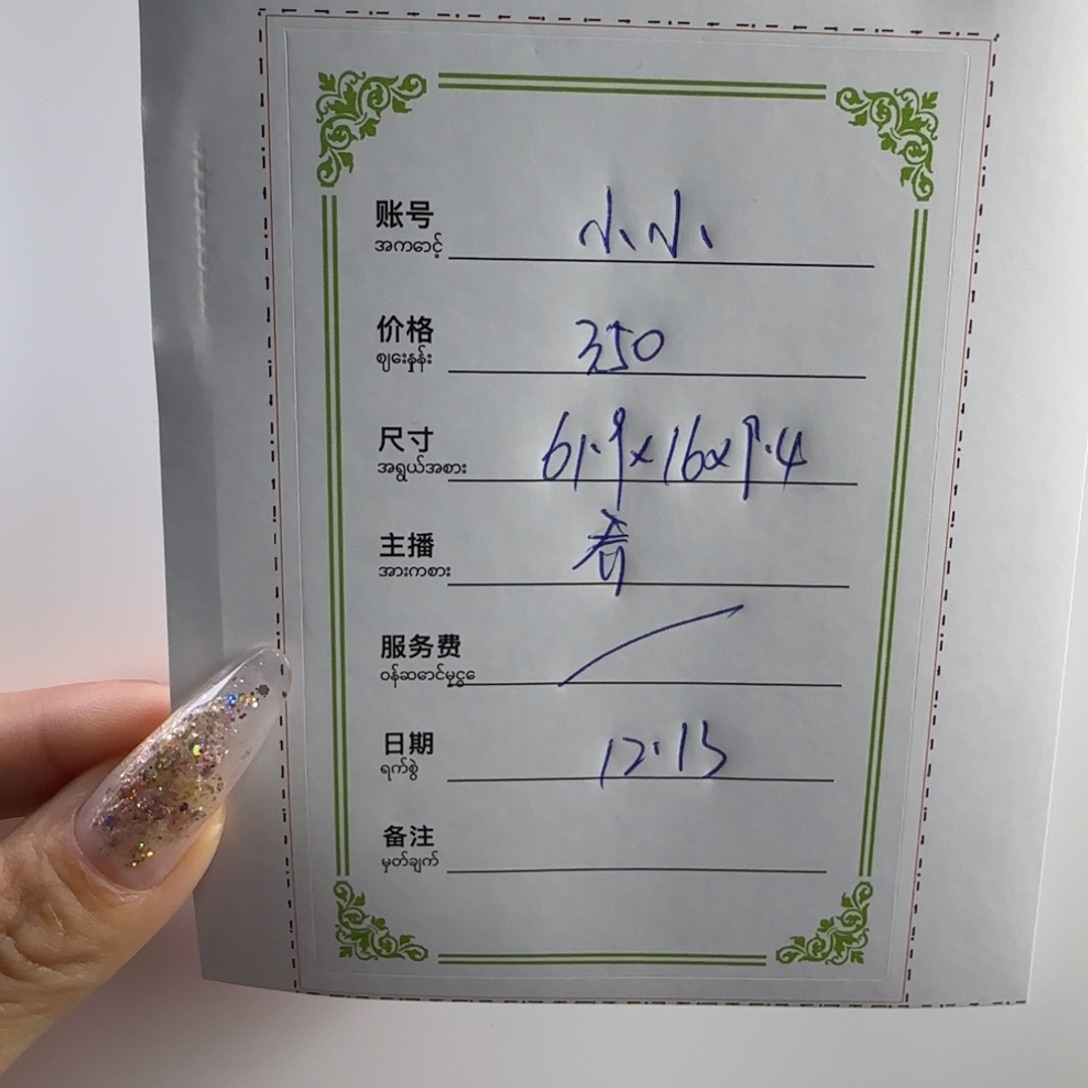 账号 小小
အကောင့်
价格 350
ဈေးနှုန်း
尺寸 61.9x16x9.4
အရွယ်အစား
主播 春
အားကစား
服务费
ဝန်ဆောင်မှုငွေ
日期 12.13
ရက်စွဲ
备注
မှတ်ချက်